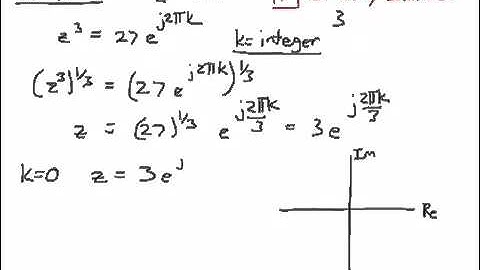 3
z³ = 27 e^{j2πk} k = integer
(z³)^{1/3} = (27 e^{j2πk})^{1/3}
z = (27)^{1/3} e^{j2πk/3} = 3 e^{j2πk/3}
k=0 z = 3 e^{j}
Im
Re